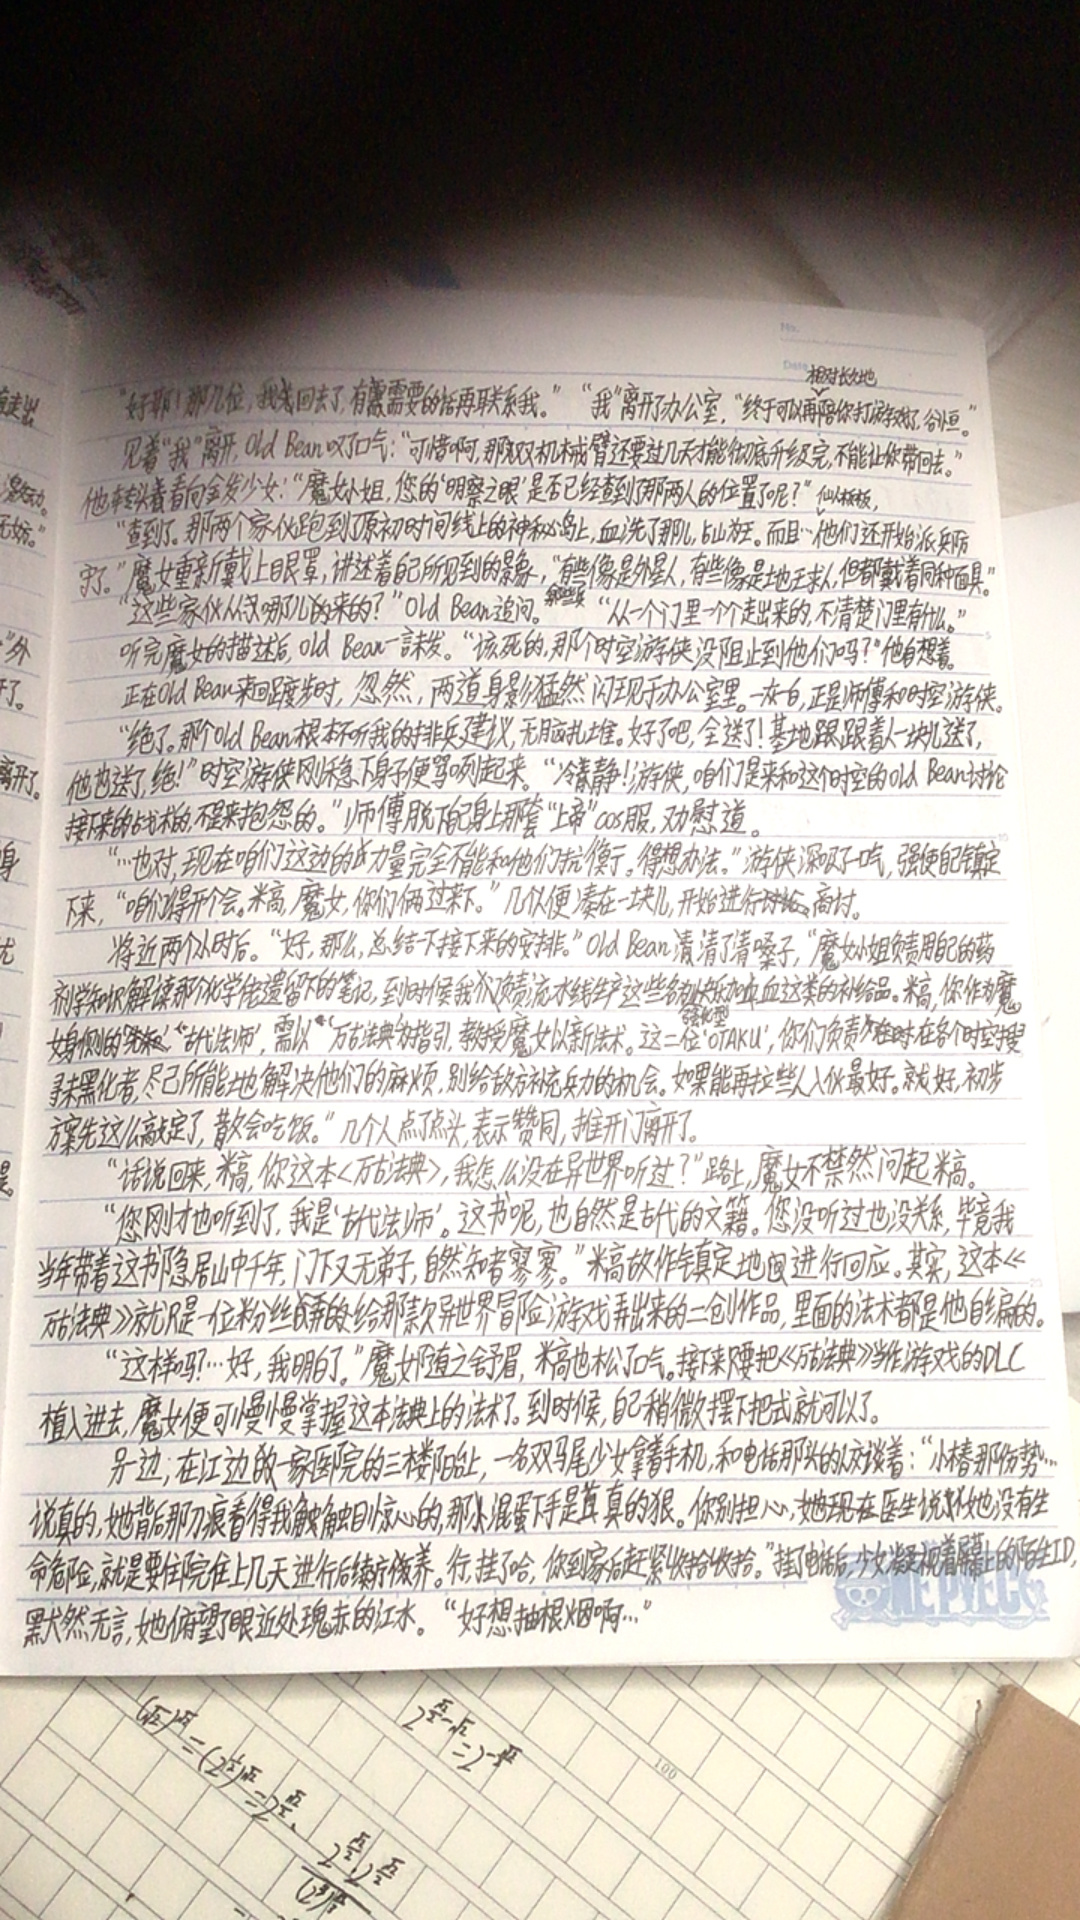 No.
Date
相对长久地
"好耶！那几位，我先回去了，有需要的话再联系我。" "我"离开了办公室，"终于可以再陪你打游戏了，谷恒。"
见着"我"离开，Old Bean叹了口气："可惜啊，那双机械臂还要过几天才能彻底升级完，不能让你带回去。"
他转头看向金发少女："魔女小姐，您的'明察之眼'是否已经查到了那两人的位置了呢？"
"查到了。那两个家伙跑到了原初时间线上的神秘岛上，血洗了那儿，占山为王。而且…他们还开始派兵防
守了。"魔女重新戴上眼罩，讲述着自己所见到的景象，"有些像是外星人，有些像是地球人，但都戴着同种面具。"
"这些家伙从哪儿来的？"Old Bean追问。 "从一个门里一个个走出来的，不清楚门里有什么。"
听完魔女的描述后，Old Bean一言未发。"该死的，那个时空游侠没阻止到他们吗？"他自想着。
正在Old Bean来回踱步时，忽然，两道身影猛然闪现于办公室里。一灰一白，正是师傅和时空游侠。
"绝了。那个Old Bean根本不听我的排兵建议，无脑扎堆。好了吧，全送了！基地跟着人一块儿送了，
他也送了，绝！"时空游侠刚稳下身子便骂咧起来。"冷静！游侠，咱们是来和这个时空的Old Bean讨论
接下来的战术的，不是来抱怨的。"师傅脱下自己身上那套"上帝"cos服，劝慰道。
"…也对，现在咱们这边的力量完全不能和他们抗衡。得想办法。"游侠深吸了一口气，强使自己镇定
下来，"咱们得开个会。米高，魔女，你们俩过来下。"几人便凑在一块儿，开始进行商讨。
将近两个小时后。"好，那么，总结一下接下来的安排。"Old Bean清了清嗓子，"魔女小姐负责用自己的药
剂学知识解读那个化学佬遗留下的笔记，到时候我们负责流水线生产这些加血这类的补给品。米高，你作为魔
女身侧的'古代法师'，需以'万古法典'为指引，教授魔女以新法术。这二位'OTAKU'，你们负责在各个时空搜
寻未黑化者，尽己所能地解决他们的麻烦，别给敌方补充兵力的机会。如果能再拉些人入伙最好。就好，初步
方案先这么敲定了，散会吃饭。"几个人点了点头，表示赞同，推开门离开了。
"话说回来，米高，你这本《万古法典》，我怎么没在异世界听过？"路上，魔女不禁然问起米高。
"您刚才也听到了，我是'古代法师'。这书呢，也自然是古代的文籍。您没听过也没关系，毕竟我
当年带着这书隐居山中千年，门下又无弟子，自然知者寥寥。"米高故作镇定地进行回应。其实，这本《
万古法典》就只是一位粉丝给那款异世界冒险游戏弄出来的二创作品，里面的法术都是他自己编的。
"这样吗？…好，我明白了。"魔女随之舒眉，米高也松了口气。接下来只要把《万古法典》当作游戏的DLC
植入进去，魔女便可慢慢掌握这本法典上的法术了。到时候，自己稍微摆下把式就可以了。
另一边，在江边的一家医院的三楼阳台上，一名双马尾少女拿着手机，和电话那头的人交谈着："小椿那伤势…
说真的，她背后那刀痕看得我触目惊心的，那混蛋下手是真的狠。你别担心，医生说她没有生
命危险，就是要住院住上几天进行后续疗养。行，挂了哈，你到家后赶紧收拾收拾。"挂了电话后，少女凝视着屏幕上的陌生ID，
默然无言，她俯望了眼近处瑰赤的江水。"好想抽根烟啊…"
ONE PIECE
100